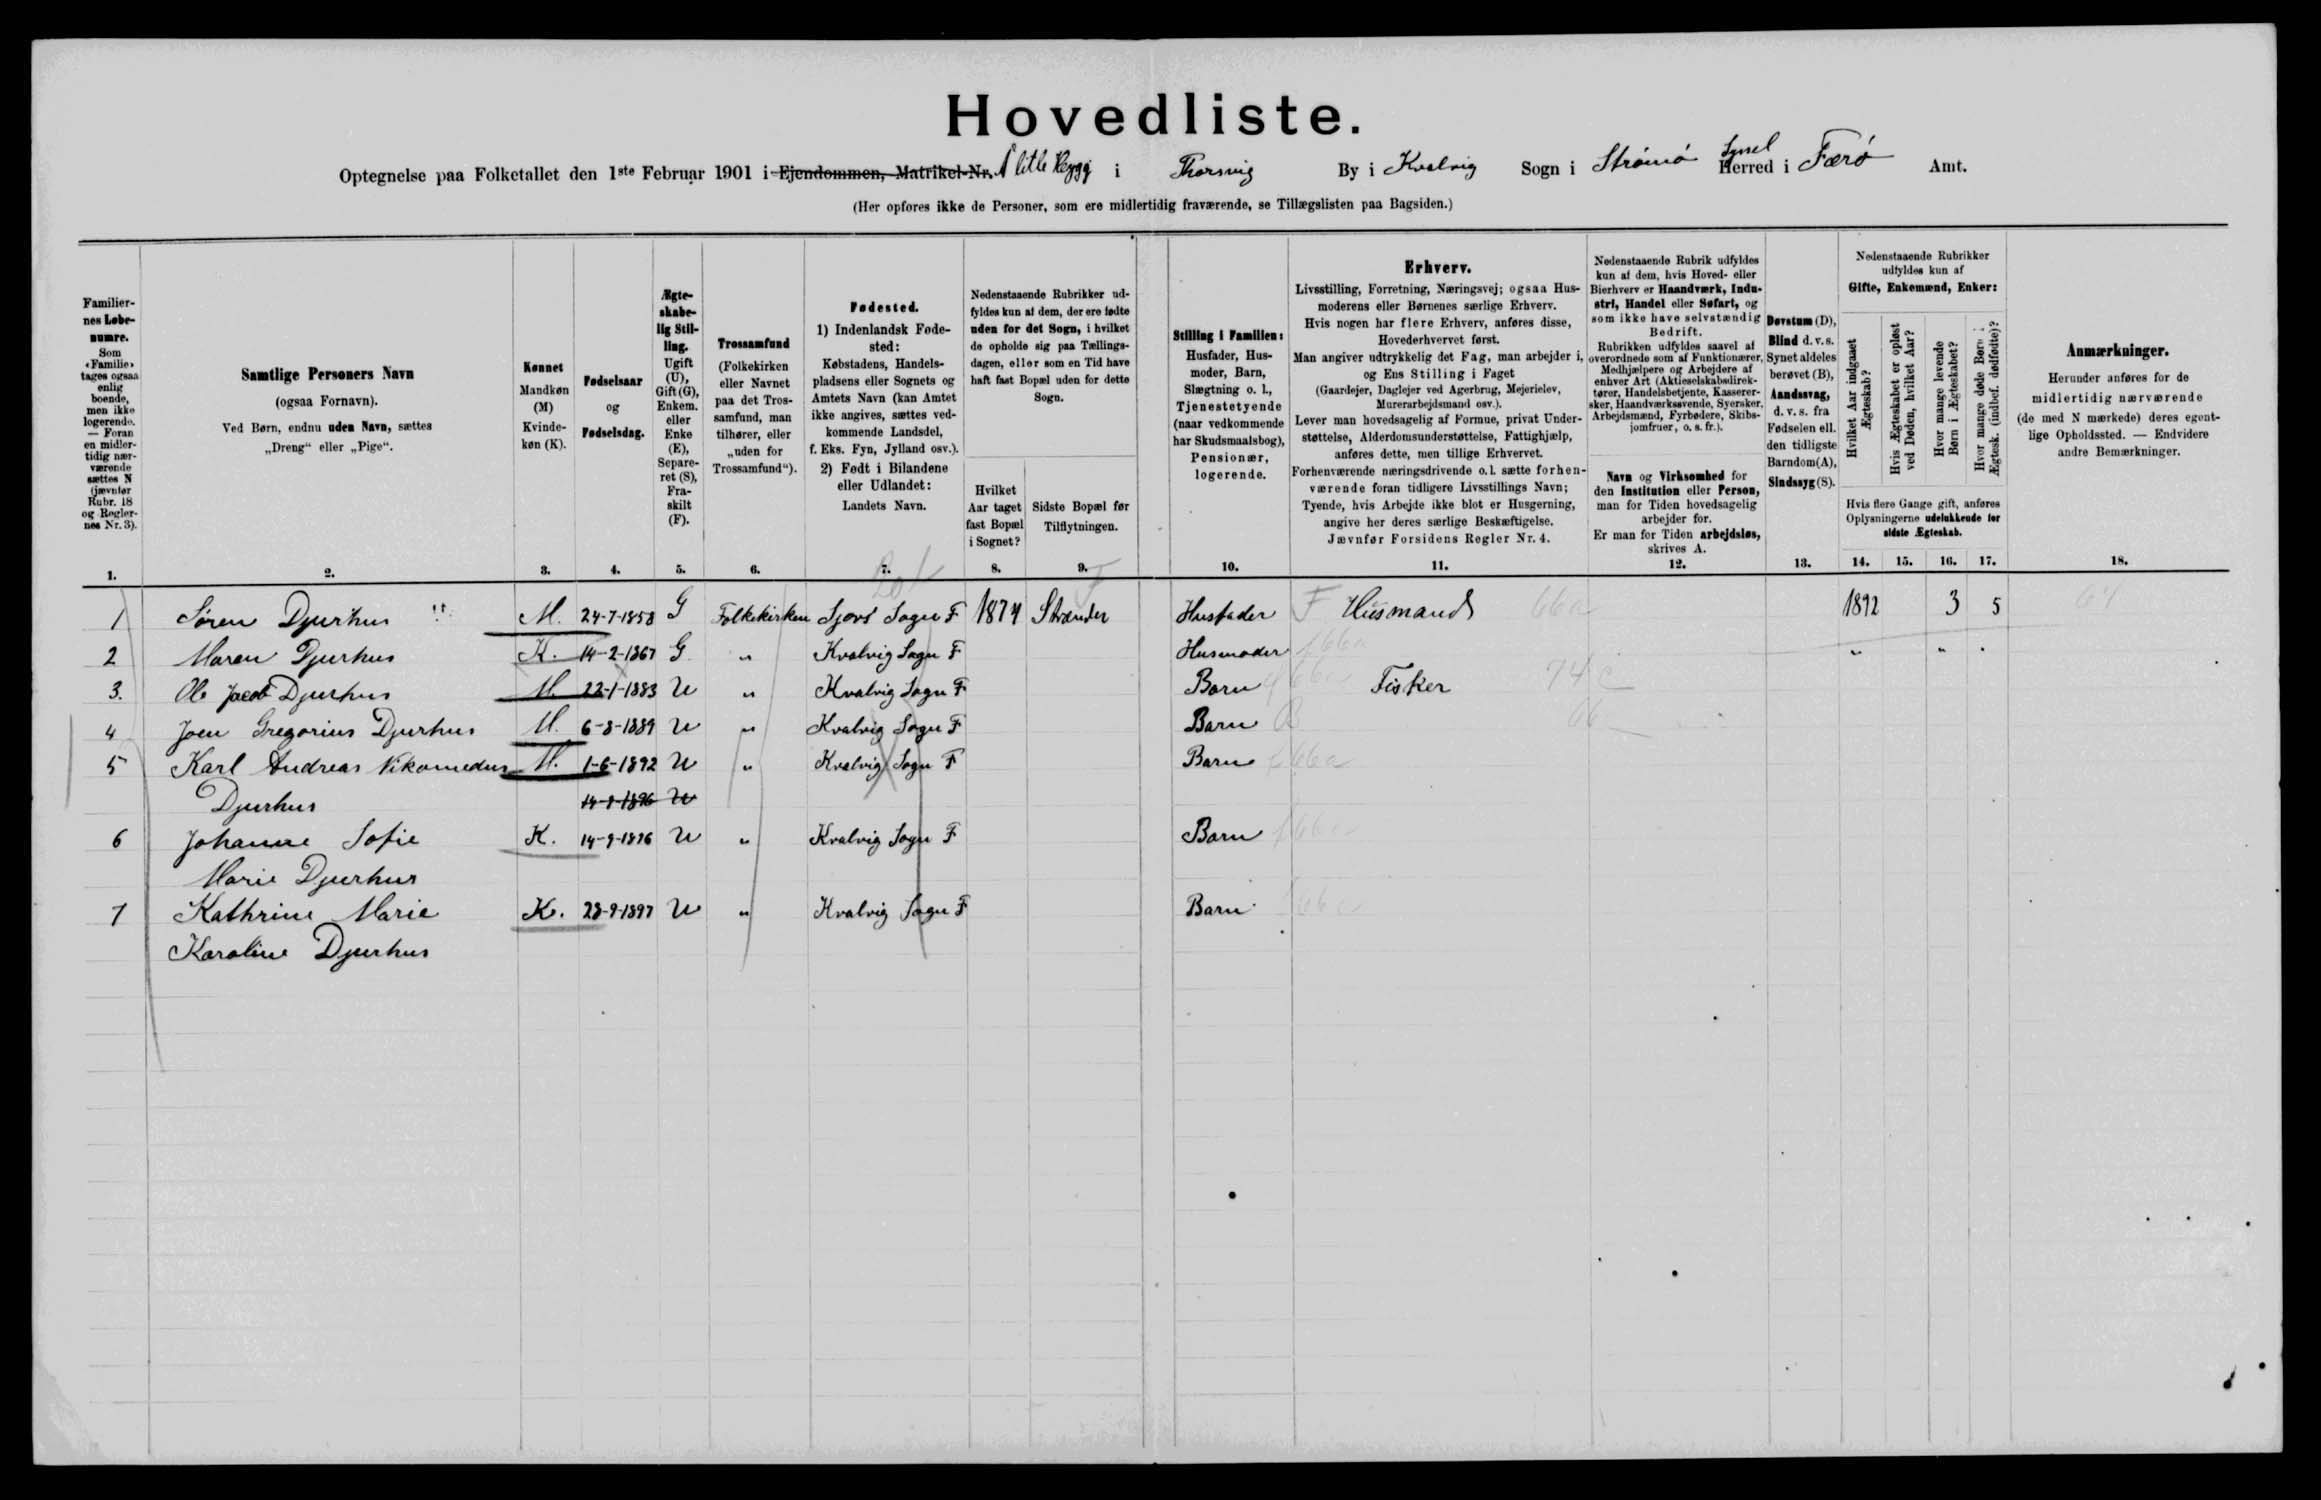 Hovedliste.
Optegnelse paa Folketallet den 1ste Februar 1901 i Ejendommen, Matrikel-Nr. Á litle Heygg i Thorsvig By i Kvalvig Sogn i Strømø Syssel Herred i Færø Amt.
(Her opføres ikke de Personer, som ere midlertidig fraværende, se Tillægslisten paa Bagsiden.)
Familier-
nes Løbe-
numre.
Som
«Familie»
tages ogsaa
enlig
boende,
men ikke
logerende.
— Foran
en midler-
tidig nær-
værende
sættes N
(jævnfør
Rubr. 18
og Regler-
nes Nr. 3).
1.
Samtlige Personers Navn
(ogsaa Fornavn).
Ved Børn, endnu uden Navn, sættes
„Dreng“ eller „Pige“.
2.
Kønnet
Mandkøn
(M)
Kvinde-
køn (K).
3.
Fødselsaar
og
Fødselsdag.
4.
Ægte-
skabe-
lig Stil-
ling.
Ugift
(U),
Gift (G),
Enkem.
eller
Enke
(E),
Separe-
ret (S),
Fra-
skilt
(F).
5.
Trossamfund
(Folkekirken
eller Navnet
paa det Tros-
samfund, man
tilhører, eller
„uden for
Trossamfund“).
6.
Fødested.
1) Indenlandsk Føde-
sted:
Købstadens, Handels-
pladsens eller Sognets og
Amtets Navn (kan Amtet
ikke angives, sættes ved-
kommende Landsdel,
f. Eks. Fyn, Jylland osv.).
2) Født i Bilandene
eller Udlandet:
Landets Navn.
7.
Nedenstaaende Rubrikker ud-
fyldes kun af dem, der ere fødte
uden for det Sogn, i hvilket
de opholde sig paa Tællings-
dagen, eller som en Tid have
haft fast Bopæl uden for dette
Sogn.
Hvilket
Aar taget
fast Bopæl
i Sognet?
8.
Sidste Bopæl før
Tilflytningen.
9.
Stilling i Familien:
Husfader, Hus-
moder, Barn,
Slægtning o. l.,
Tjenestetyende
(naar vedkommende
har Skudsmaalsbog),
Pensionær,
logerende.
10.
Erhverv.
Livsstilling, Forretning, Næringsvej; ogsaa Hus-
moderens eller Børnenes særlige Erhverv.
Hvis nogen har flere Erhverv, anføres disse,
Hovederhvervet først.
Man angiver udtrykkelig det Fag, man arbejder i,
og Ens Stilling i Faget
(Gaardejer, Daglejer ved Agerbrug, Mejerielev,
Murerarbejdsmand osv.).
Lever man hovedsagelig af Formue, privat Under-
støttelse, Alderdomsunderstøttelse, Fattighjælp,
anføres dette, men tillige Erhvervet.
Forhenværende næringsdrivende o. l. sætte forhen-
værende foran tidligere Livsstillings Navn;
Tyende, hvis Arbejde ikke blot er Husgerning,
angive her deres særlige Beskæftigelse.
Jævnfør Forsidens Regler Nr. 4.
11.
Nedenstaaende Rubrik udfyldes
kun af dem, hvis Hoved- eller
Bierhverv er Haandværk, Indu-
stri, Handel eller Søfart, og
som ikke have selvstændig
Bedrift.
Rubrikken udfyldes saavel af
overordnede som af Funktionærer,
Medhjælpere og Arbejdere af
enhver Art (Aktieselskabsdirek-
tører, Handelsbetjente, Kasserer-
sker, Haandværkssvende, Syersker,
Arbejdsmænd, Fyrbødere, Skibs-
jomfruer, o. s. fr.).
Navn og Virksomhed for
den Institution eller Person,
man for Tiden hovedsagelig
arbejder for.
Er man for Tiden arbejdsløs,
skrives A.
12.
Døvstum (D),
Blind d. v. s.
Synet aldeles
berøvet (B),
Aandssvag,
d. v. s. fra
Fødselen ell.
den tidligste
Barndom (A),
Sindssyg (S).
13.
Nedenstaaende Rubrikker
udfyldes kun af
Gifte, Enkemænd, Enker:
Hvilket Aar indgaaet
Ægteskab?
Hvis Ægteskabet er opløst
ved Døden, hvilket Aar?
Hvor mange levende
Børn i Ægteskabet?
Hvor mange døde Børn i
Ægtesk. (indbef. dødfødte)?
Hvis flere Gange gift, anføres
Oplysningerne udelukkende for
sidste Ægteskab.
14. 15. 16. 17.
Anmærkninger.
Herunder anføres for de
midlertidig nærværende
(de med N mærkede) deres egent-
lige Opholdssted. — Endvidere
andre Bemærkninger.
18.
1 Søren Djurhus M. 24-7-1858 G Folkekirken Sjovs Sogn F 1874 Strænder Husfader F Husmand 66a 1892 3 5 64
2 Maren Djurhus K. 14-2-1867 G „ Kvalvig Sogn F Husmoder f 66a „ „
3. Ole Jacob Djurhus M. 22-1-1883 U „ Kvalvig Sogn F Barn 66a Fisker 74 c
4 Joen Gregorius Djurhus M. 6-8-1889 U „ Kvalvig Sogn F Barn 66
5 Karl Andreas Nikomedus M. 1-6-1892 U „ Kvalvig Sogn F Barn f 66a
Djurhus 14-8-1896 U
6 Johanne Sofie K. 14-9-1896 U „ Kvalvig Sogn F Barn f 66a
Marie Djurhus
7 Kathrine Marie K. 28-9-1897 U „ Kvalvig Sogn F Barn f 66a
Karoline Djurhus